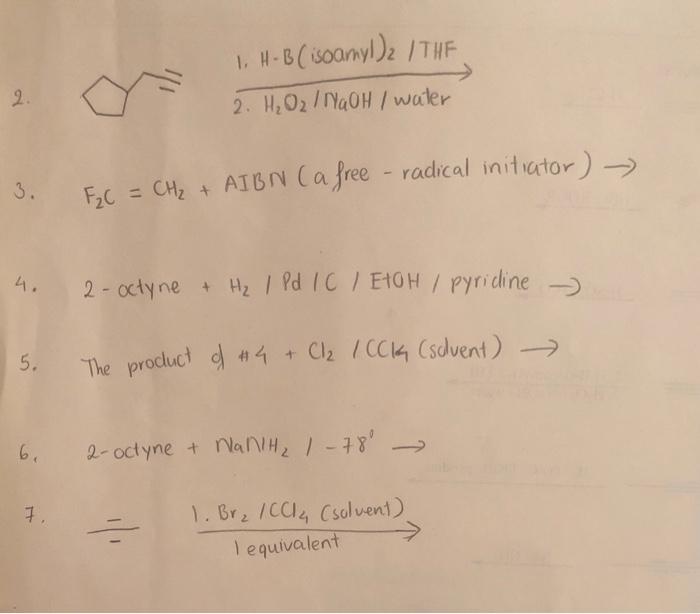 1. H-B(isoamyl)2 / THF
2.
2. H2O2 / NaOH / water
3. F2C = CH2 + AIBN (a free - radical initiator) →
4. 2-octyne + H2 / Pd / C / EtOH / pyridine →
5. The product of #4 + Cl2 / CCl4 (solvent) →
6. 2-octyne + NaNH2 / -78° →
7. 1. Br2 / CCl4 (solvent)
1 equivalent